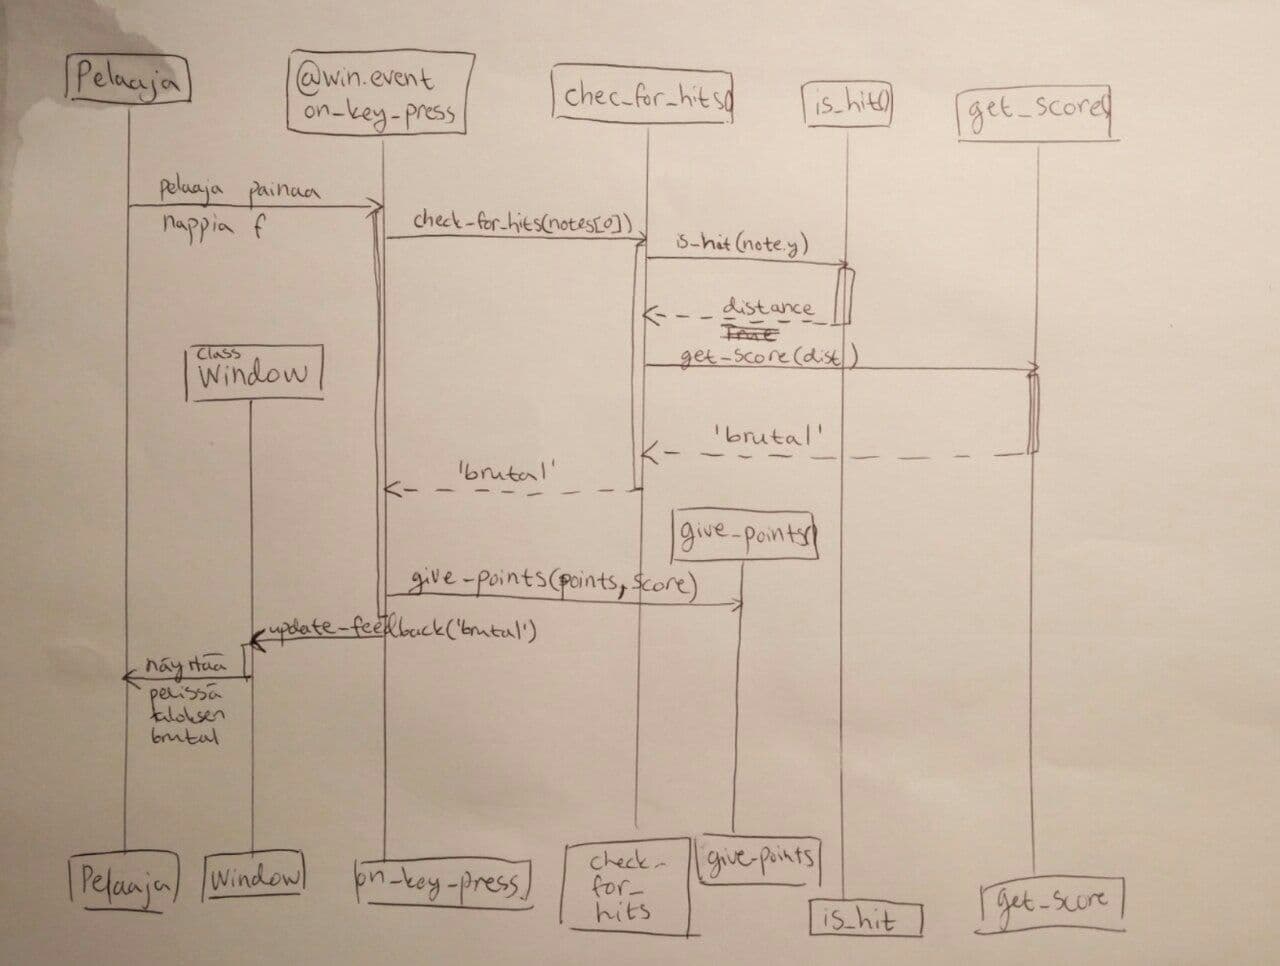 Pelaaja
@win.event
on_key_press
chec_for_hits()
is_hit()
get_score()
pelaaja painaa
nappia f
check_for_hits(notes[0])
is_hit(note.y)
distance
True
get_score(dist)
class
Window
'brutal'
'brutal'
give_points()
give_points(points, score)
update_feedback('brutal')
näyttää
pelissä
tuloksen
brutal
Pelaaja
Window
on_key_press
check_
for_
hits
give_points
is_hit
get_score